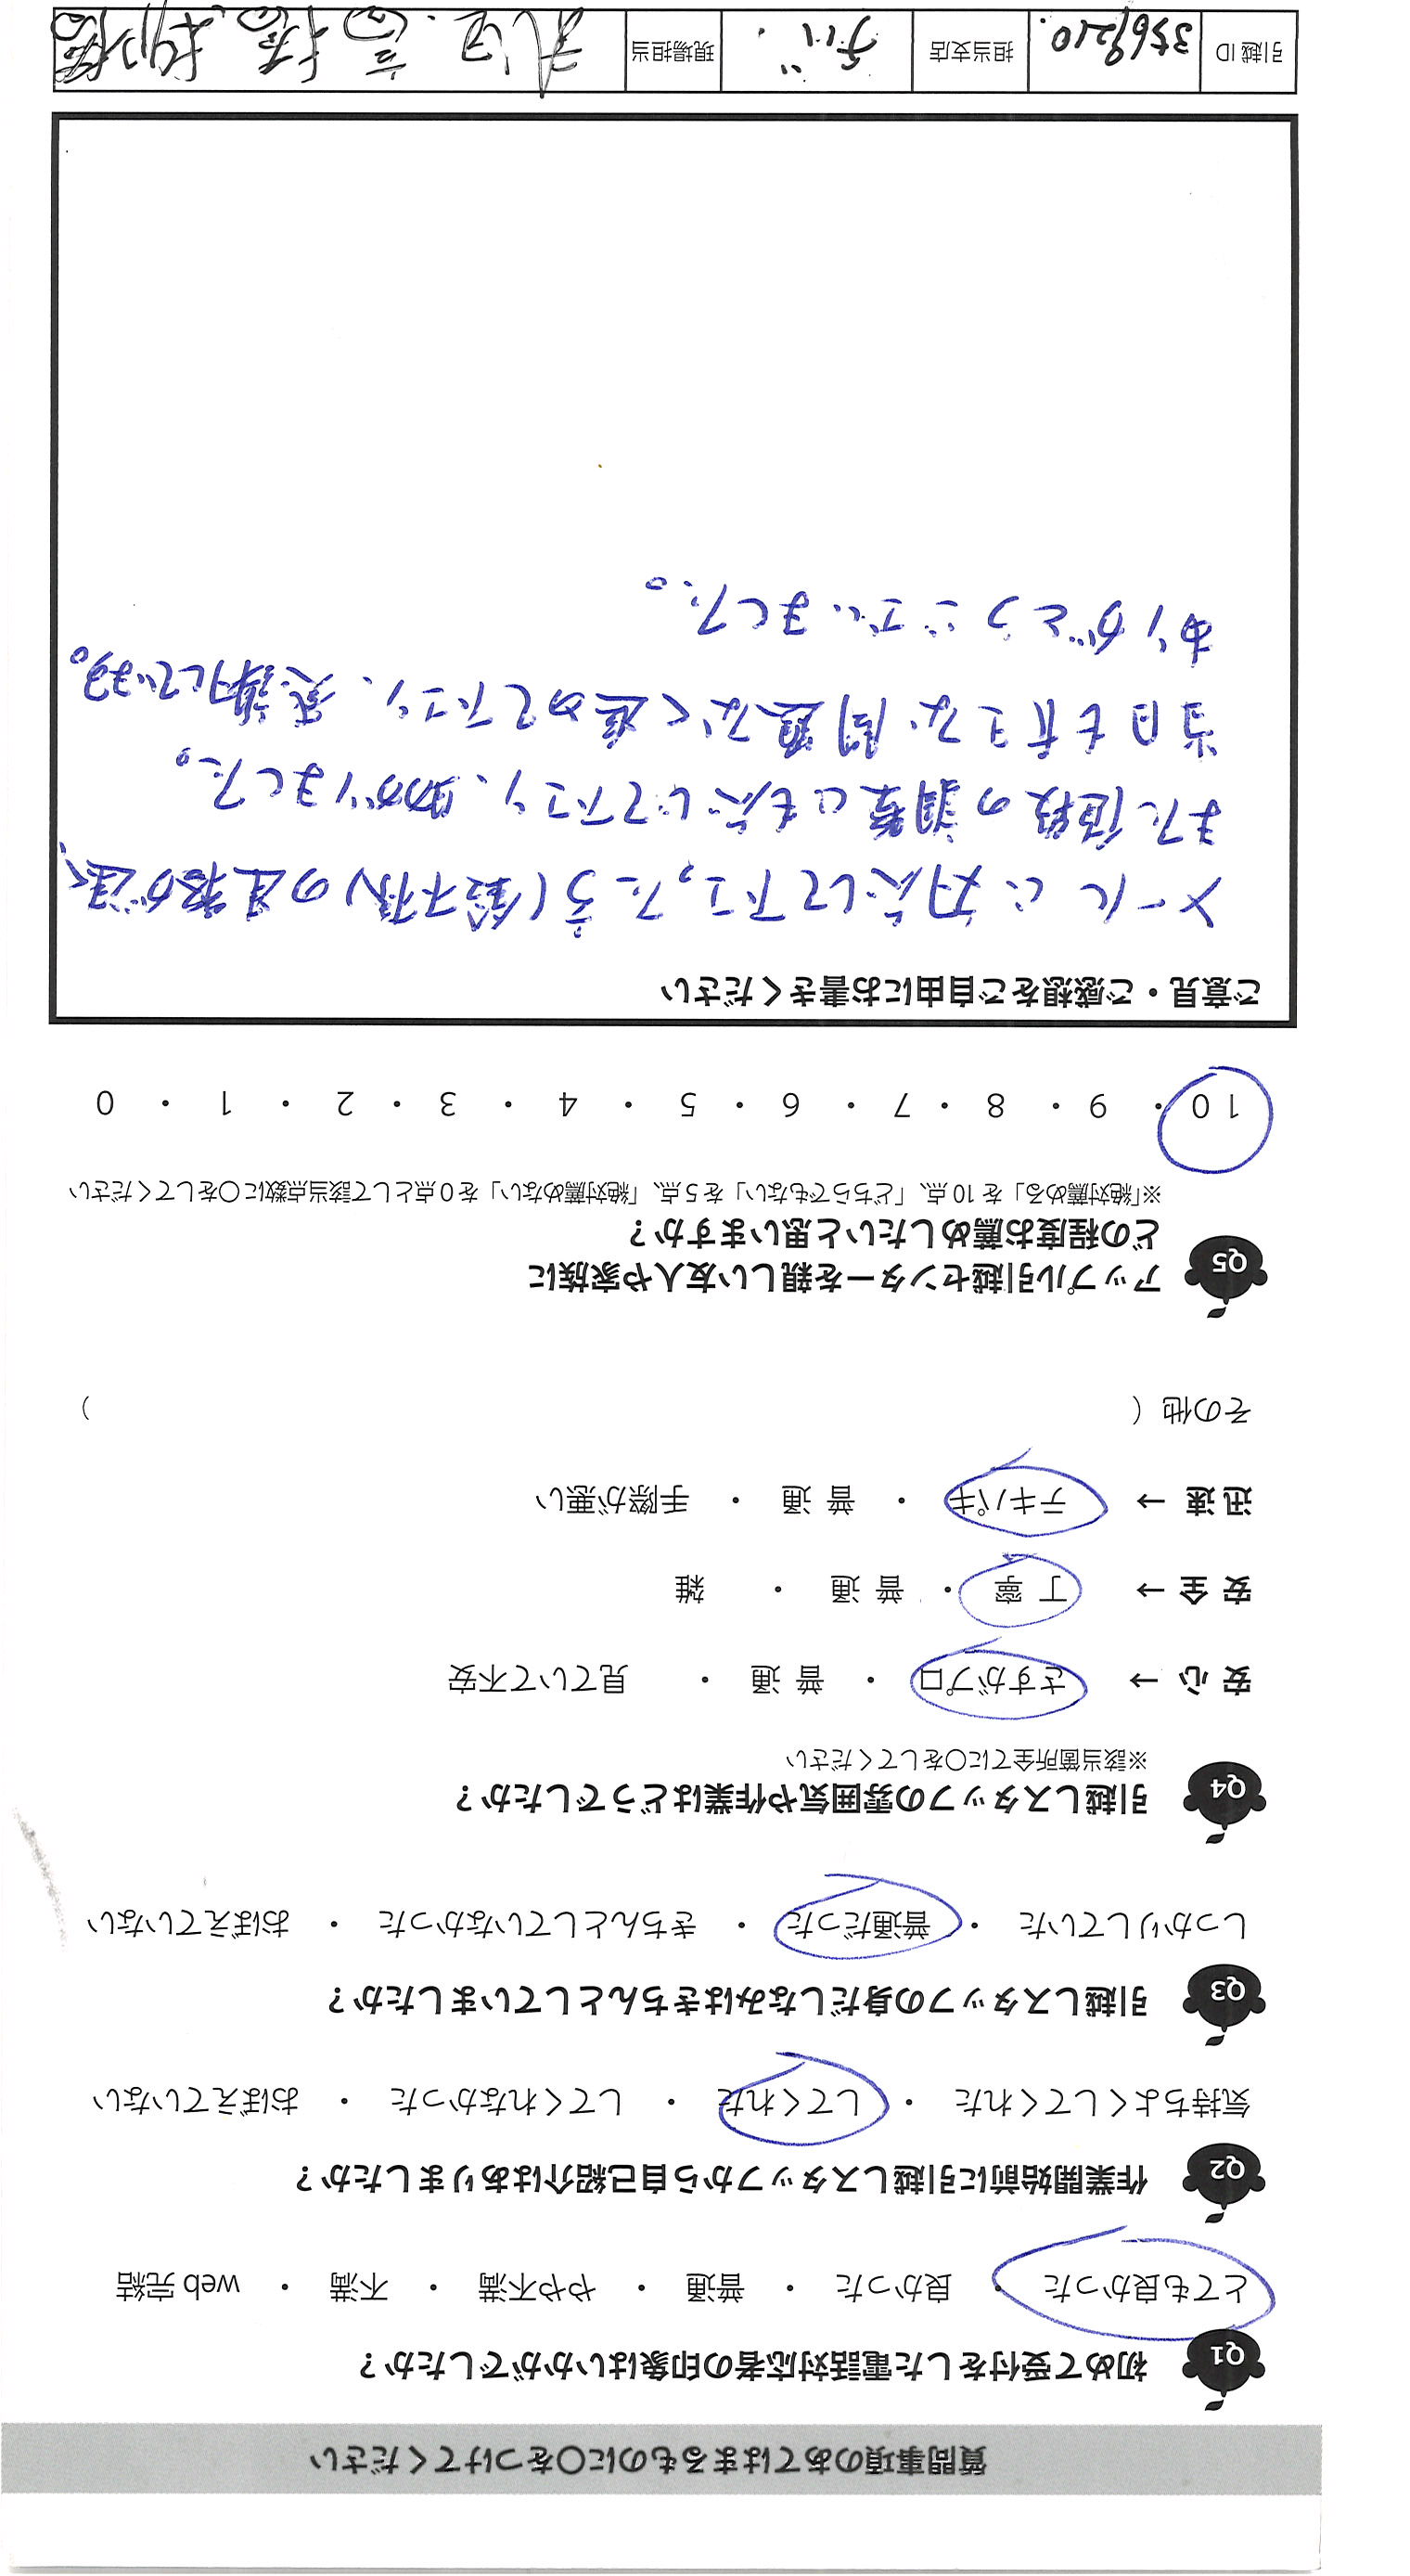 質問事項のあてはまるものに〇をつけてください
Q1 初めて受付をした電話対応者の印象はいかがでしたか？
とても良かった ・ 良かった ・ 普通 ・ やや不満 ・ 不満 ・ web 完結
Q2 作業開始前に引越しスタッフから自己紹介はありましたか？
気持ちよくしてくれた ・ してくれた ・ してくれなかった ・ おぼえていない
Q3 引越しスタッフの身だしなみはきちんとしていましたか？
しっかりしていた ・ 普通だった ・ きちんとしていなかった ・ おぼえていない
Q4 引越しスタッフの雰囲気や作業はどうでしたか？
※該当箇所全てに〇をしてください
安 心 → さすがプロ ・ 普 通 ・ 見ていて不安
安 全 → 丁 寧 ・ 普 通 ・ 雑
迅 速 → テキパキ ・ 普 通 ・ 手際が悪い
その他（ ）
Q5 アップル引越センターを親しい友人や家族に
どの程度お薦めしたいと思いますか？
※「絶対薦める」を 10 点、「どちらでもない」を 5 点、「絶対薦めない」を 0 点として該当点数に〇をしてください
10 ・ 9 ・ 8 ・ 7 ・ 6 ・ 5 ・ 4 ・ 3 ・ 2 ・ 1 ・ 0
ご意見・ご感想をご自由にお書きください
メールに対応して下さった方(鈴木様)の連絡が速く、
また値段の調整にも応じて下さり、助かりました。
当日も大きな問題なく進めて下さり、感謝しています。
ありがとうございました。
引越 ID 3569210. 担当支店 千バ 現場担当 高橋